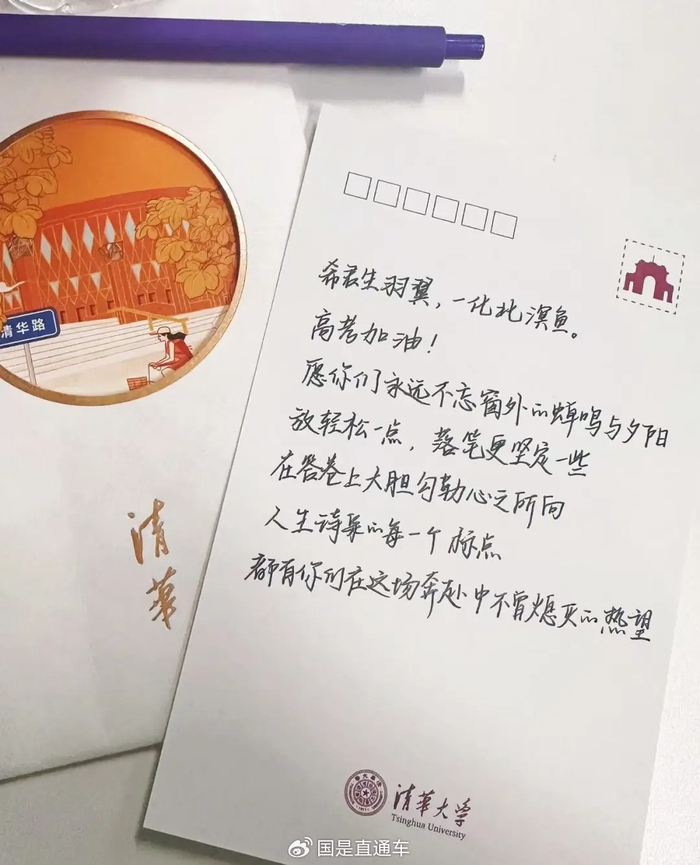 清华路
清華
希君生羽翼,一化北溟鱼。
高考加油!
愿你们永远不忘窗外的蝉鸣与夕阳
放轻松一点,落笔更坚定一些
在答卷上大胆勾勒心之所向
人生诗集的每一个标点
都有你们在这场奔赴中不曾熄灭的热望
清華大学
Tsinghua University
国是直通车